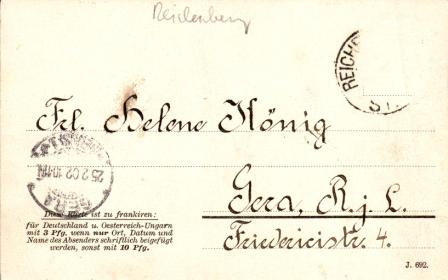 Reichenberg
REICHE
ST.
Frl. Helene König
Gera, R. j. L.
Friedericistr. 4.
GERA
25 2 02 10-11N
Diese Karte ist zu frankiren:
für Deutschland u. Oesterreich-Ungarn
mit 3 Pfg. wenn nur Ort, Datum und
Name des Absenders schriftlich beigefügt
werden, sonst mit 10 Pfg.
J. 692.